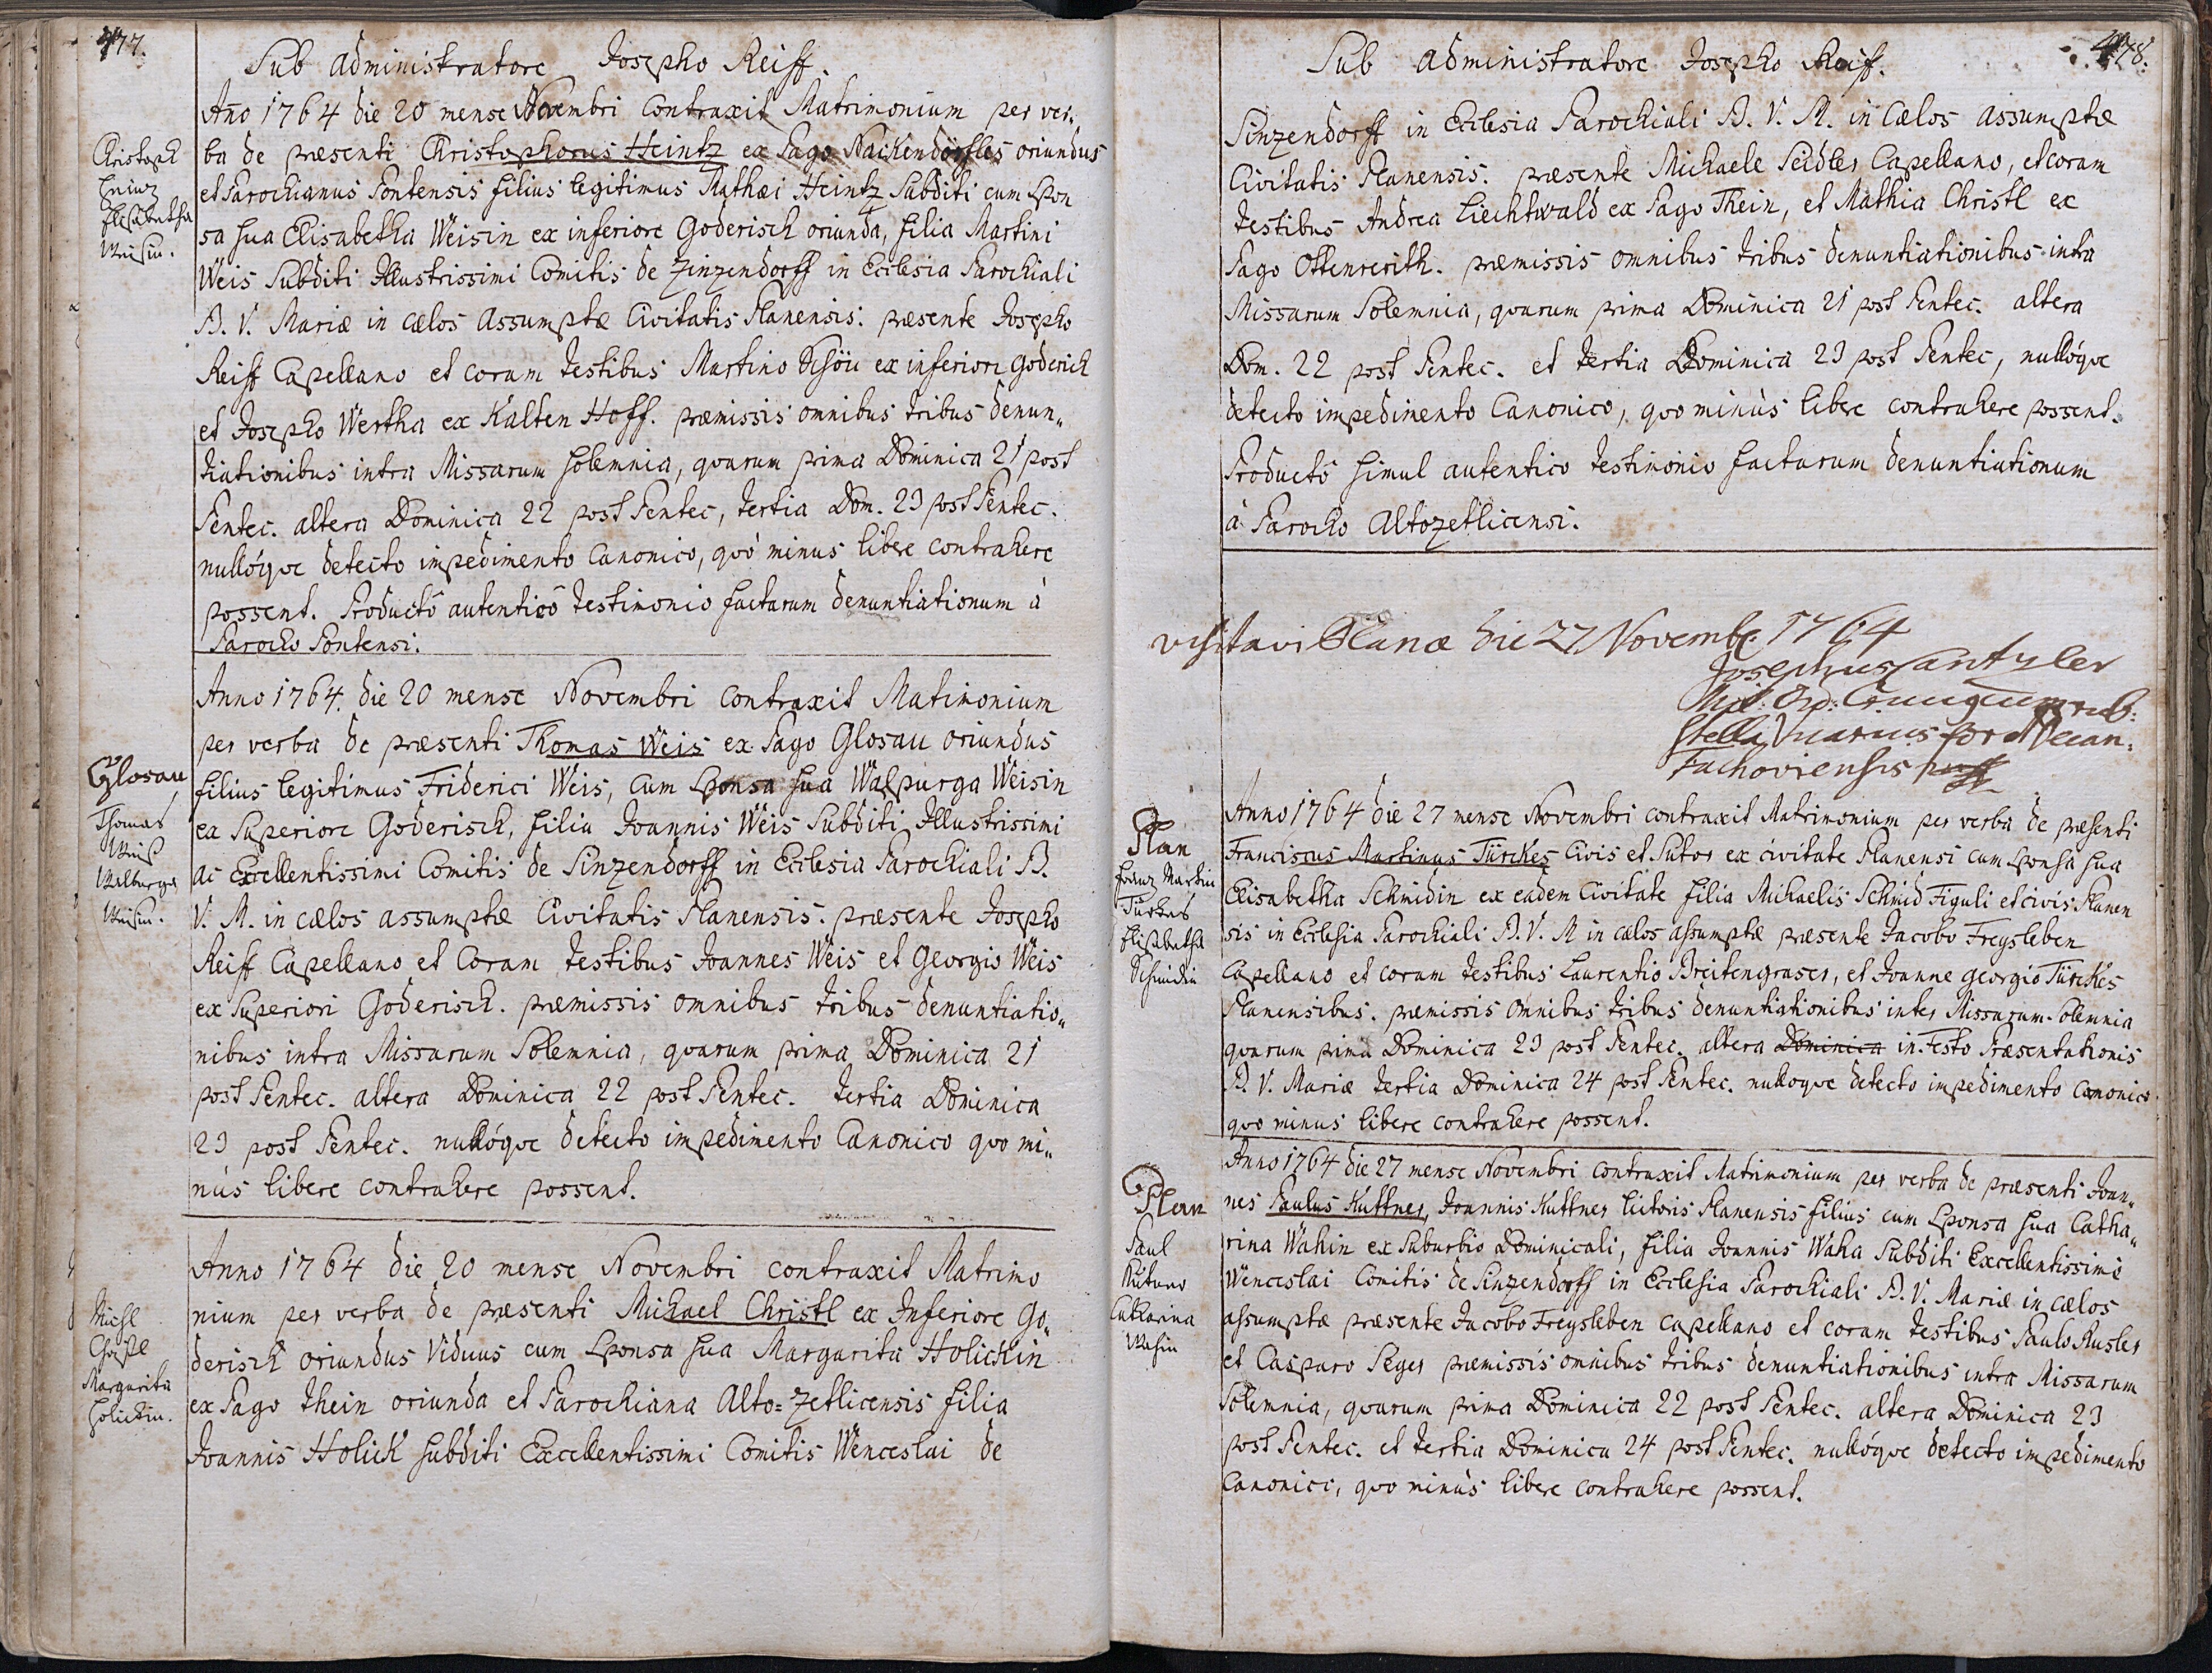 477.
Sub administratore Josepho Reiff.
Año 1764 die 20 mense Novembri Contraxit Matrimonium per ver„
ba de præsenti Christophorus Heintz ex Pago Nackendörffles oriundus
et Parochianus Pontensis filius legitimus Mathæi Heintz Subditi cum spon
sa sua Elisabetha Weisin ex inferiore Goderisch oriunda, filia Martini
Weis Subditi Illustrissimi Comitis de Zinzendorff in Ecclesia Parochiali
B. V. Mariæ in cælos Assumptæ Civitatis Planensis. præsente Josepho
Reiff Capellano et coram testibus Martino Schön ex inferiori Goderich
et Josepho Wertha ex Kalten Hoff. præmissis omnibus tribus denun„
tiationibus intra Missarum solemnia, quarum prima Dominica 21 post
Pentec. altera Dominica 22 post Pentec, tertia Dom. 23 post Pentec.
nullóque detecto impedimento Canonico, quò minus libere contrahere
possent. Productô autenticô testimonio factarum denuntiationum à
Parocho Pontensi.
Christoph
Heinz
Elisabetha
Weisin.
Anno 1764. die 20 mense Novembri contraxit Matimonium
per verba de præsenti Thomas Weis ex Pago Glosau oriundus
filius legitimus Friderici Weis, cum sponsa sua Walpurga Weisin
ex Superiore Goderisch, filia Joannis Weis Subditi Illustrissimi
ac Excellentissimi Comitis de Sinzendorff in Ecclesia Parochiali B.
V. M. in cælos assumptæ Civitatis Planensis. præsente Josepho
Reiff Capellano et Coram testibus Joannes Weis et Georgio Weis
ex Superiori Goderisch. præmissis omnibus tribus denuntiatio„
nibus intra Missarum Solemnia, quarum prima Dominica 21
post Pentec. altera Dominica 22 post Pentec. tertia Dominica
23 post Pentec. nullóque detecto impedimento Canonico quo mi„
nùs libere contrahere possent.
Glosau
Thomas
Weiß
Walburga
Weisin.
Anno 1764 die 20 mense Novembri contraxit Matrimo
nium per verba de præsenti Michael Christl ex Inferiore Go„
derisch oriundus Viduus cum sponsa sua Margarita Holickin
ex Pago thein oriunda et Parochiana Alto=Zetlicensis filia
Joannis Holick subditi Excellentissimi Comitis Wenceslai de
Michl
Christl
Margarita
Holickin.
478.
Sub administratore Josepho Reif.
Sinzendorff in Ecclesia Parochiali B. V. M. in Cælos assumptæ
Civitatis Planensis. præsente Michaele Seidler Capellano, et coram
testibus Andrea Liechtwald ex Pago Thein, et Mathia Christl ex
Pago Ottenreith. præmissis omnibus tribus denuntiationibus intra
Missarum Solemnia, quarum prima Dominica 21 post Pentec. altera
Dom. 22 post Pentec. et tertia Dominica 23 post Pentec, nullóque
detecto impedimento Canonico, quo minùs libere contrahere possent.
Producto simul autentico testimonio factarum denuntiationum
à Parocho Altozetlicensi.
visitavi Planæ die 27 Novemb. 1764
Josephus Cantzler
Mil: Ord: Crucigerorum rub:
Stella Vicarius for: Decan.
Tachoviensis
Anno 1764 die 27 mense Novembri contraxit Matrimonium per verba de præsenti
Franciscus Martinus Türckes Civis et Sutor ex civitate Planensi cum sponsa sua
Elisabetha Schmidin ex eadem Civitate filia Michaelis Schmid Figuli et civis Planen
sis in Ecclesia Parochiali B. V. M in cælos assumptæ præsente Jacobo Freysleben
Capellano et coram testibus Laurentio Breitengraser, et Joanne Georgio Türckes
Planensibus. præmissis omnibus tribus denuntiationibus inter Missarum Solemnia
quarum prima Dominica 23 post Pentec. altera Dominica in Festo Præsentationis
B. V. Mariæ tertia Dominica 24 post Pentec. nulloque detecto impedimento canonico
quo minus libere contrahere possent.
Plan
Franz Martin
Türkes
Elisabetha
Schmidin
Anno 1764 die 27 mense Novembri contraxit Matrimonium per verba de præsenti Joan„
nes Paulus Kuttner, Joannis Kuttner lictoris Planensis filius cum sponsa sua Catha„
rina Wahin ex Suburbio Dominicali, filia Joannis Waha Subditi Excellentissimi
Wenceslai Comitis de Sinzendorff in Ecclesia Parochiali B. V. Mariæ in cælos
assumptæ præsente Jacobo Freysleben Capellano et coram testibus Paulo Kusler
et Casparo Seger præmissis omnibus tribus denuntiationibus intra Missarum
Solemnia, quarum prima Dominica 22 post Pentec. altera Dominica 23
post Pentec. et tertia Dominica 24 post Pentec. nullóque detecto impedimento
Canonici, quo minùs libere contrahere possent.
Plan
Paul
Catharina
Wahin